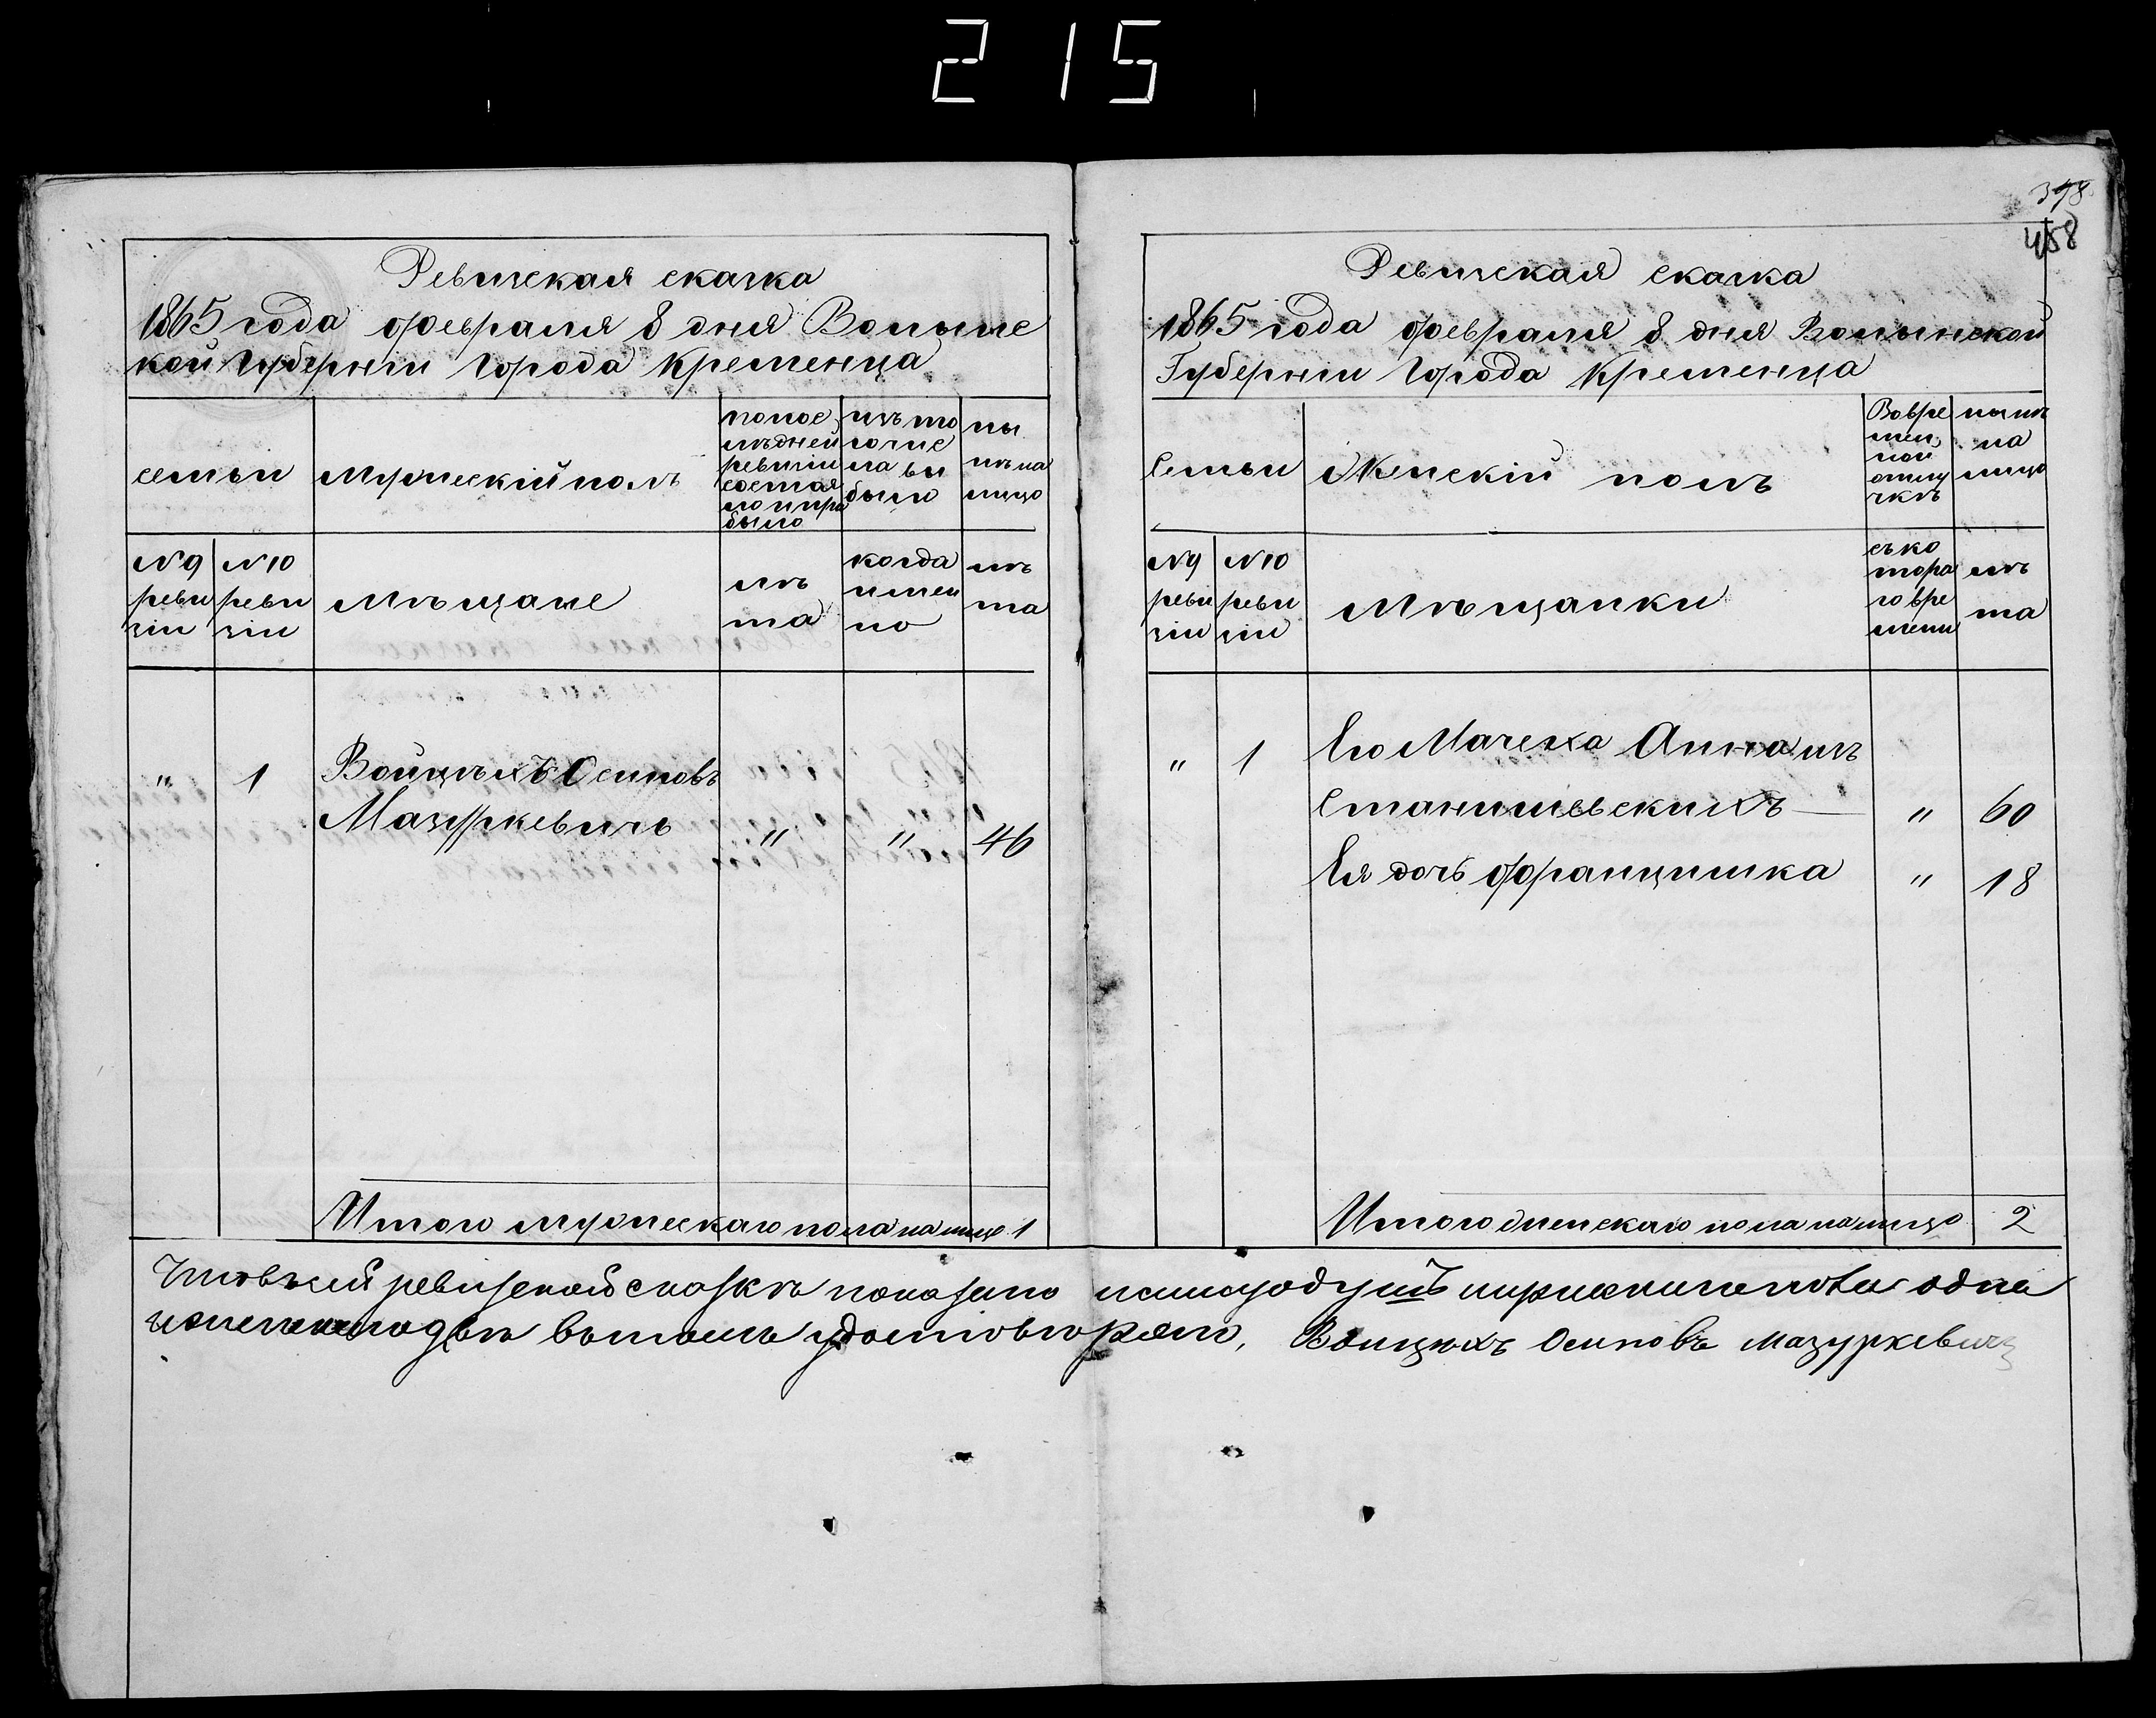 215
398
458
Ревизская сказка
1865 года февраля 8 дня Волынс
кой Губерніи Города Кременца
семьи
Мужескій полъ
по пос
лѣдней
ревизіи
состоя
ло и при
было
изъ то
го чис
ла вы
было
ны
нѣ на
лицо
№ 9
реви
зіи
№ 10
реви
зіи
Мѣщане
лѣ
та
когда
имен
но
лѣ
та
" 1 Войцѣхъ Осиповъ
Мазуркевичъ " " 46
Итого мужескаго пола на лицо 1
Ревизская сказка
1865 года февраля 8 дня Волынской
Губерніи Города Кременца
Семьи
Женскій полъ
Во вре
мен
ной
отлу
чкѣ
нынѣ
на
лицо
№ 9
реви
зіи
№ 10
реви
зіи
Мѣщанки
съ ко
тора
го вре
мени
лѣ
та
" 1 Его Мачеха Анна изъ
Станишевскихъ " 60
Ея дочь Францишка " 18
Итого женскаго пола на лицо 2
Что в сей ревизской сказкѣ показано налицо душъ мужескаго пола одна
и женскаго двѣ въ томъ удостовѣряю, Войцѣхъ Осиповъ Мазуркевичъ